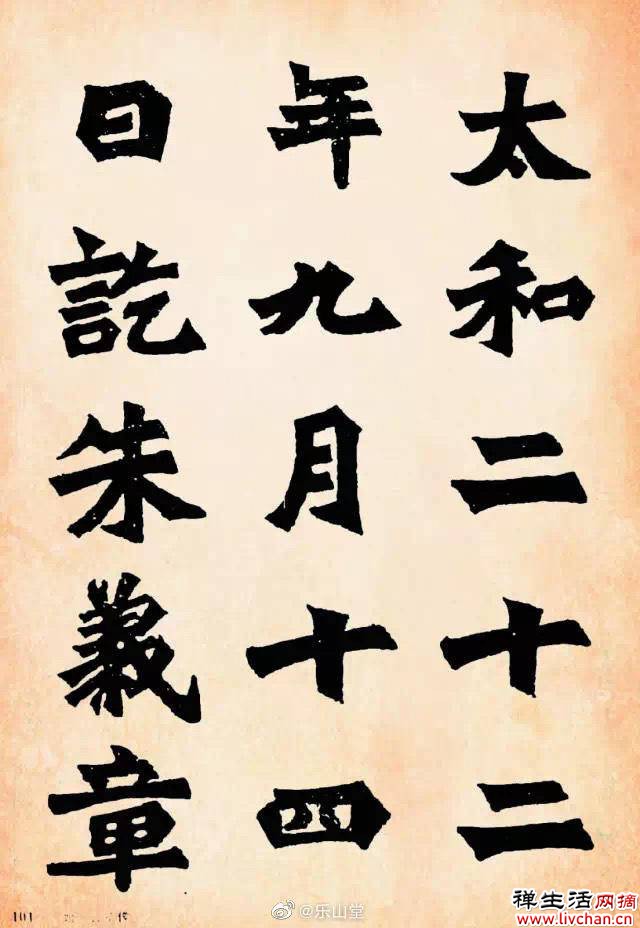 太和二十二
年九月十四
日訖朱義章
101
@乐山堂
禅生活网摘
www.livchan.com